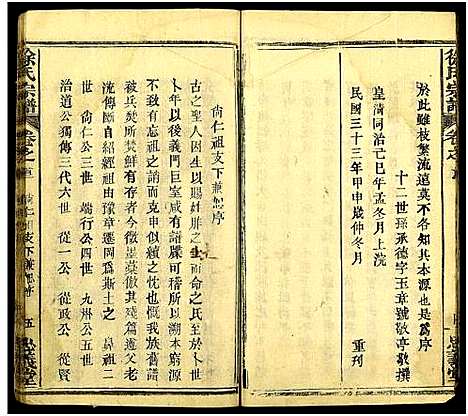 徐氏宗譜
卷之首
於此雖枝繁流遠莫不各知其本源也是為序
十二世孫承德字玉章號敬亭敬撰
皇清同治己巳年孟冬月上浣
民國三十三年甲申歲仲冬月 重刊
尚仁祖支下兼恕序
古之聖人因生以賜姓胙之土而命之氏至於卜世
卜年以後義門巨室咸有譜牒可稽所以溯本窮源
不敢有忘祖之誚而克申似續之忱也
被兵焚所焚鮮有存者今徵墨蒙倣其殘篇遵父老
流傳斷自成公由豫章遷於斯土之 鼻祖二
世 尚仁公三世 端行公四世 九州公五世
治道公獨傳三代六世 從一公 從政公 從賢
徐氏宗譜
卷之首
尚仁支下兼恕序
五
忠義堂